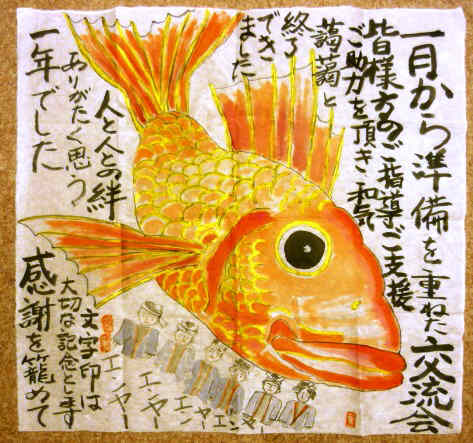 一月から準備を重ねた交流会
皆様方のご指導ご支援
ご助力を頂き和気
藹藹と
終了
でき
ました
人と人との絆
ありがたく思う
一年でした
文字印は
大切な記念とします
感謝を籠めて
エンヤー
エンヤー
エンヤー
エンヤー